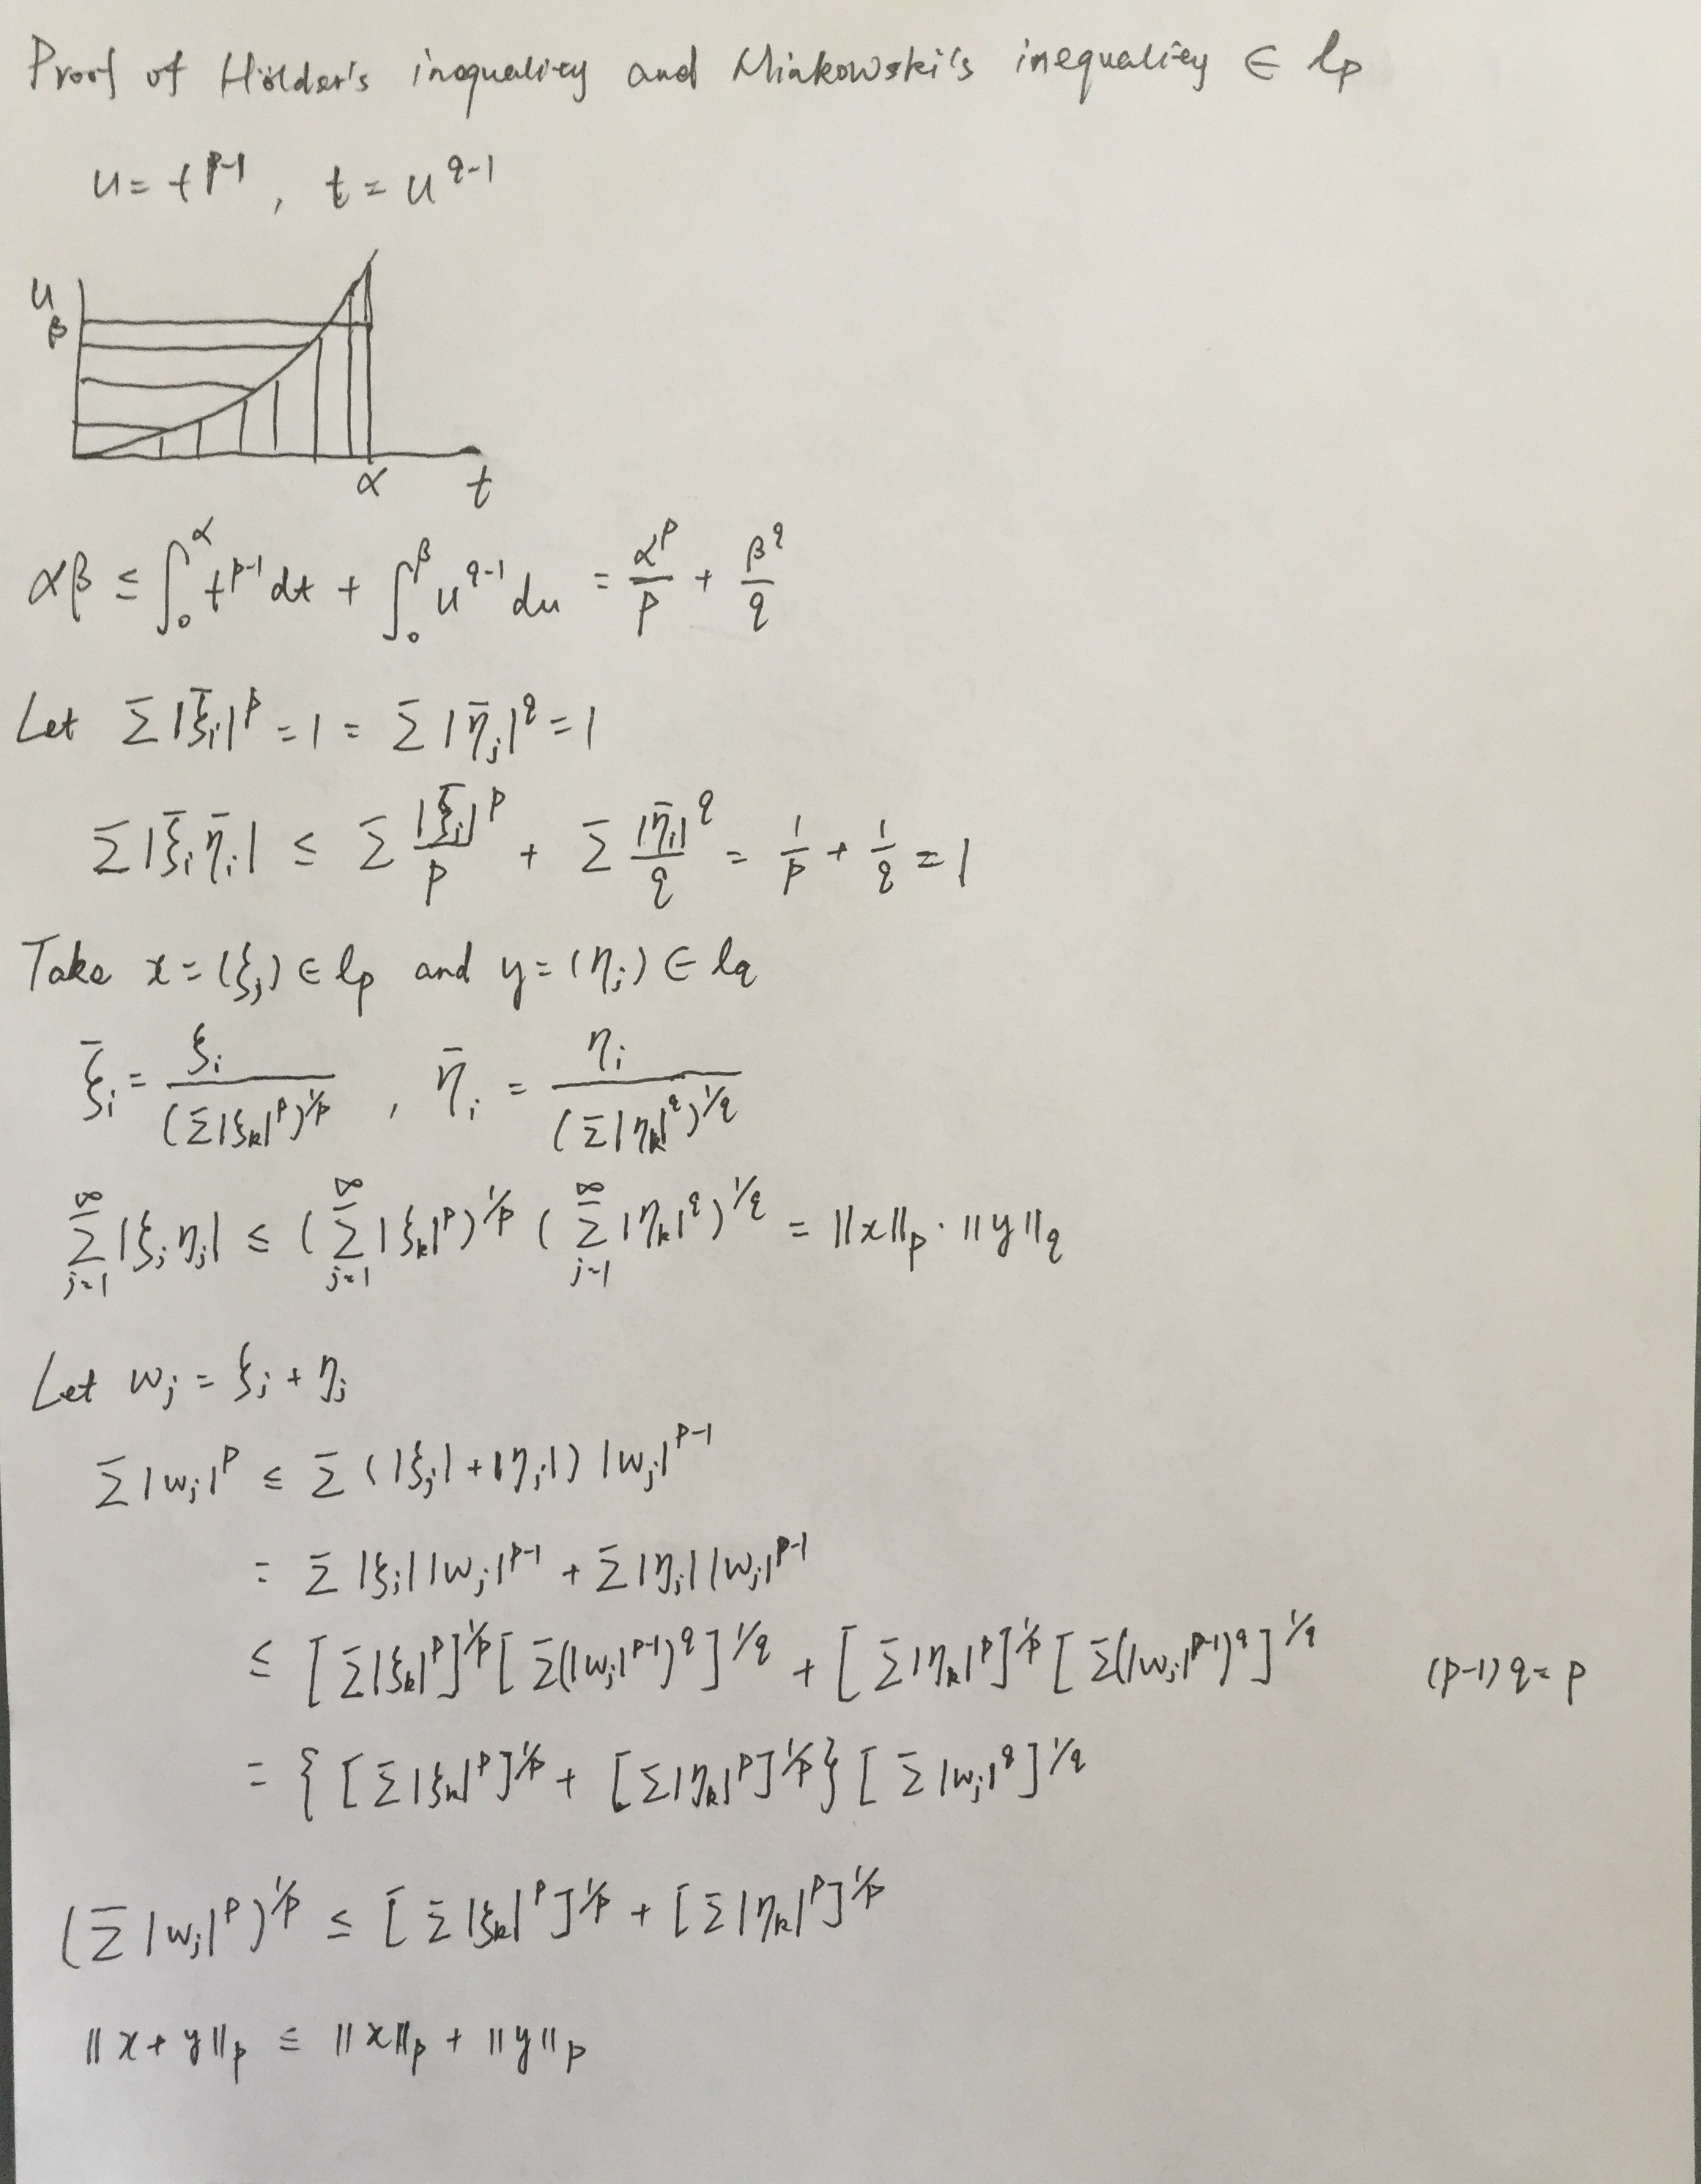 Proof of Hölder's inequality and Minkowski's inequality ∈ lp
u = t^{p-1}, t = u^{q-1}
u
β
α t
αβ ≤ ∫_0^α t^{p-1} dt + ∫_0^β u^{q-1} du = α^p/p + β^q/q
Let Σ|ξ̄_i|^p = 1 = Σ|η̄_j|^q = 1
Σ|ξ̄_i η̄_i| ≤ Σ |ξ̄_i|^p/p + Σ |η̄_i|^q/q = 1/p + 1/q = 1
Take x = (ξ_j) ∈ lp and y = (η_j) ∈ lq
ξ̄_i = ξ_i/(Σ|ξ_k|^p)^{1/p}, η̄_i = η_i/(Σ|η_k|^q)^{1/q}
Σ_{j=1}^∞ |ξ_j η_j| ≤ (Σ_{j=1}^∞ |ξ_k|^p)^{1/p} (Σ_{j=1}^∞ |η_k|^q)^{1/q} = ||x||_p · ||y||_q
Let w_j = ξ_j + η_j
Σ|w_j|^p ≤ Σ(|ξ_j| + |η_j|) |w_j|^{p-1}
= Σ|ξ_j||w_j|^{p-1} + Σ|η_j||w_j|^{p-1}
≤ [Σ|ξ_k|^p]^{1/p} [Σ(|w_j|^{p-1})^q]^{1/q} + [Σ|η_k|^p]^{1/p} [Σ(|w_j|^{p-1})^q]^{1/q} (p-1)q = p
= {[Σ|ξ_k|^p]^{1/p} + [Σ|η_k|^p]^{1/p}} [Σ|w_j|^q]^{1/q}
(Σ|w_j|^p)^{1/p} ≤ [Σ|ξ_k|^p]^{1/p} + [Σ|η_k|^p]^{1/p}
||x + y||_p ≤ ||x||_p + ||y||_p